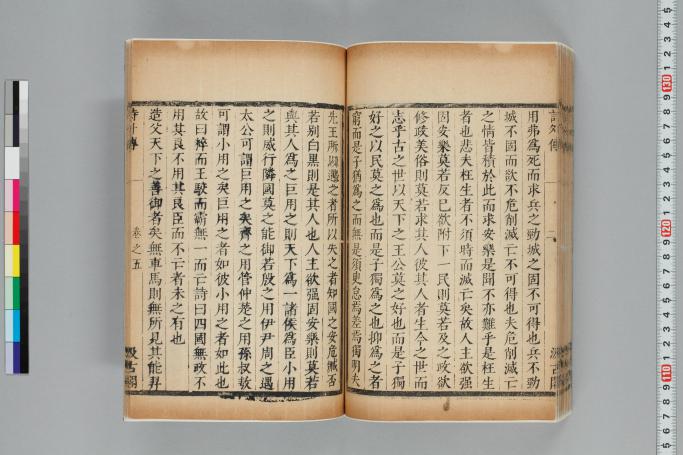 詩外傳
二
汲古閣
用弗爲死而求兵之勁城之固不可得也兵不勁
城不固而欲不危削滅亡不可得也夫危削滅亡
之情皆積於此而求安樂是聞不亦難乎是枉生
者也悲夫枉生者不須時而滅亡矣故人主欲强
固安樂莫若反己欲附下一民則莫若及之政欲
修政美俗則莫若求其人彼其人者生今之世而
志乎古之世以天下之王公莫之好也而是子獨
好之以民莫之爲也而是子獨爲之也抑爲之者
窮而是子猶爲之而無是須臾怠焉差焉獨明夫
先王所以遇之者所以失之者知國之安危臧否
若别白黑則是其人也人主欲强固安樂則莫若
與其人爲之巨用之則天下爲一諸侯爲臣小用
之則威行隣國莫之能御若殷之用伊尹周之遇
太公可謂巨用之矣齊之用管仲楚之用孫叔敖
可謂小用之矣巨用之者如彼小用之者如此也
故曰粹而王駁而霸無一而亡詩曰四國無政不
用其良不用其良臣而不亡者未之有也
造父天下之善御者矣無車馬則無所見其能羿
詩外傳
卷之五
汲古閣
110
120
130